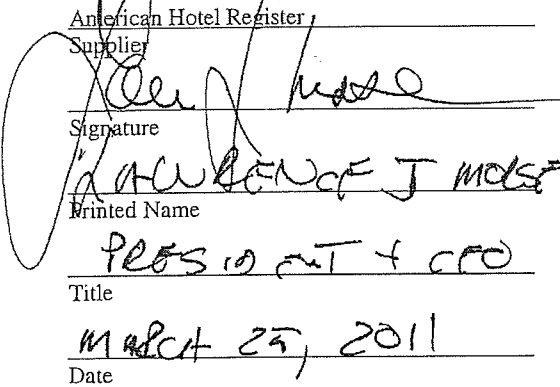 American Hotel Register
Supplier
Signature
LAWRENCE J MORSE
Printed Name
PRESIDENT + CEO
Title
MARCH 25, 2011
Date